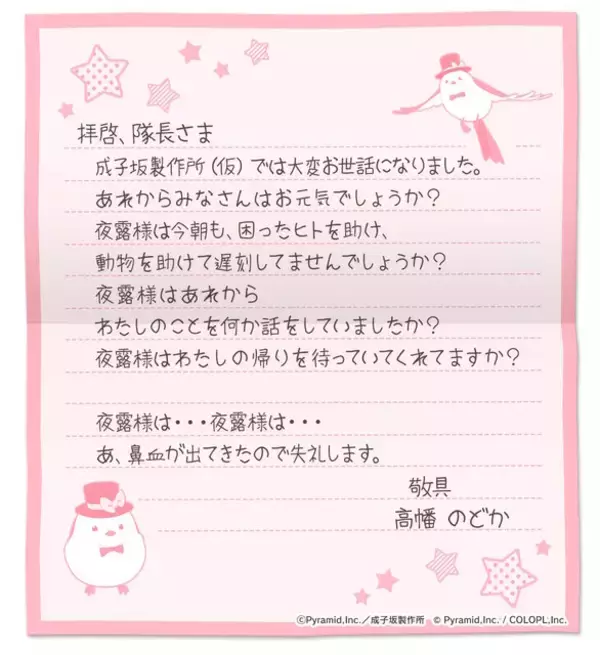 拝啓、隊長さま
成子坂製作所（仮）では大変お世話になりました。
あれからみなさんはお元気でしょうか？
夜露様は今朝も、困ったヒトを助け、
動物を助けて遅刻してませんでしょうか？
夜露様はあれから
わたしのことを何か話をしていましたか？
夜露様はわたしの帰りを待っていてくれてますか？
夜露様は・・・夜露様は・・・
あ、鼻血が出てきたので失礼します。
敬具
高幡 のどか
©Pyramid,Inc.／成子坂製作所 © Pyramid,Inc. / COLOPL,Inc.